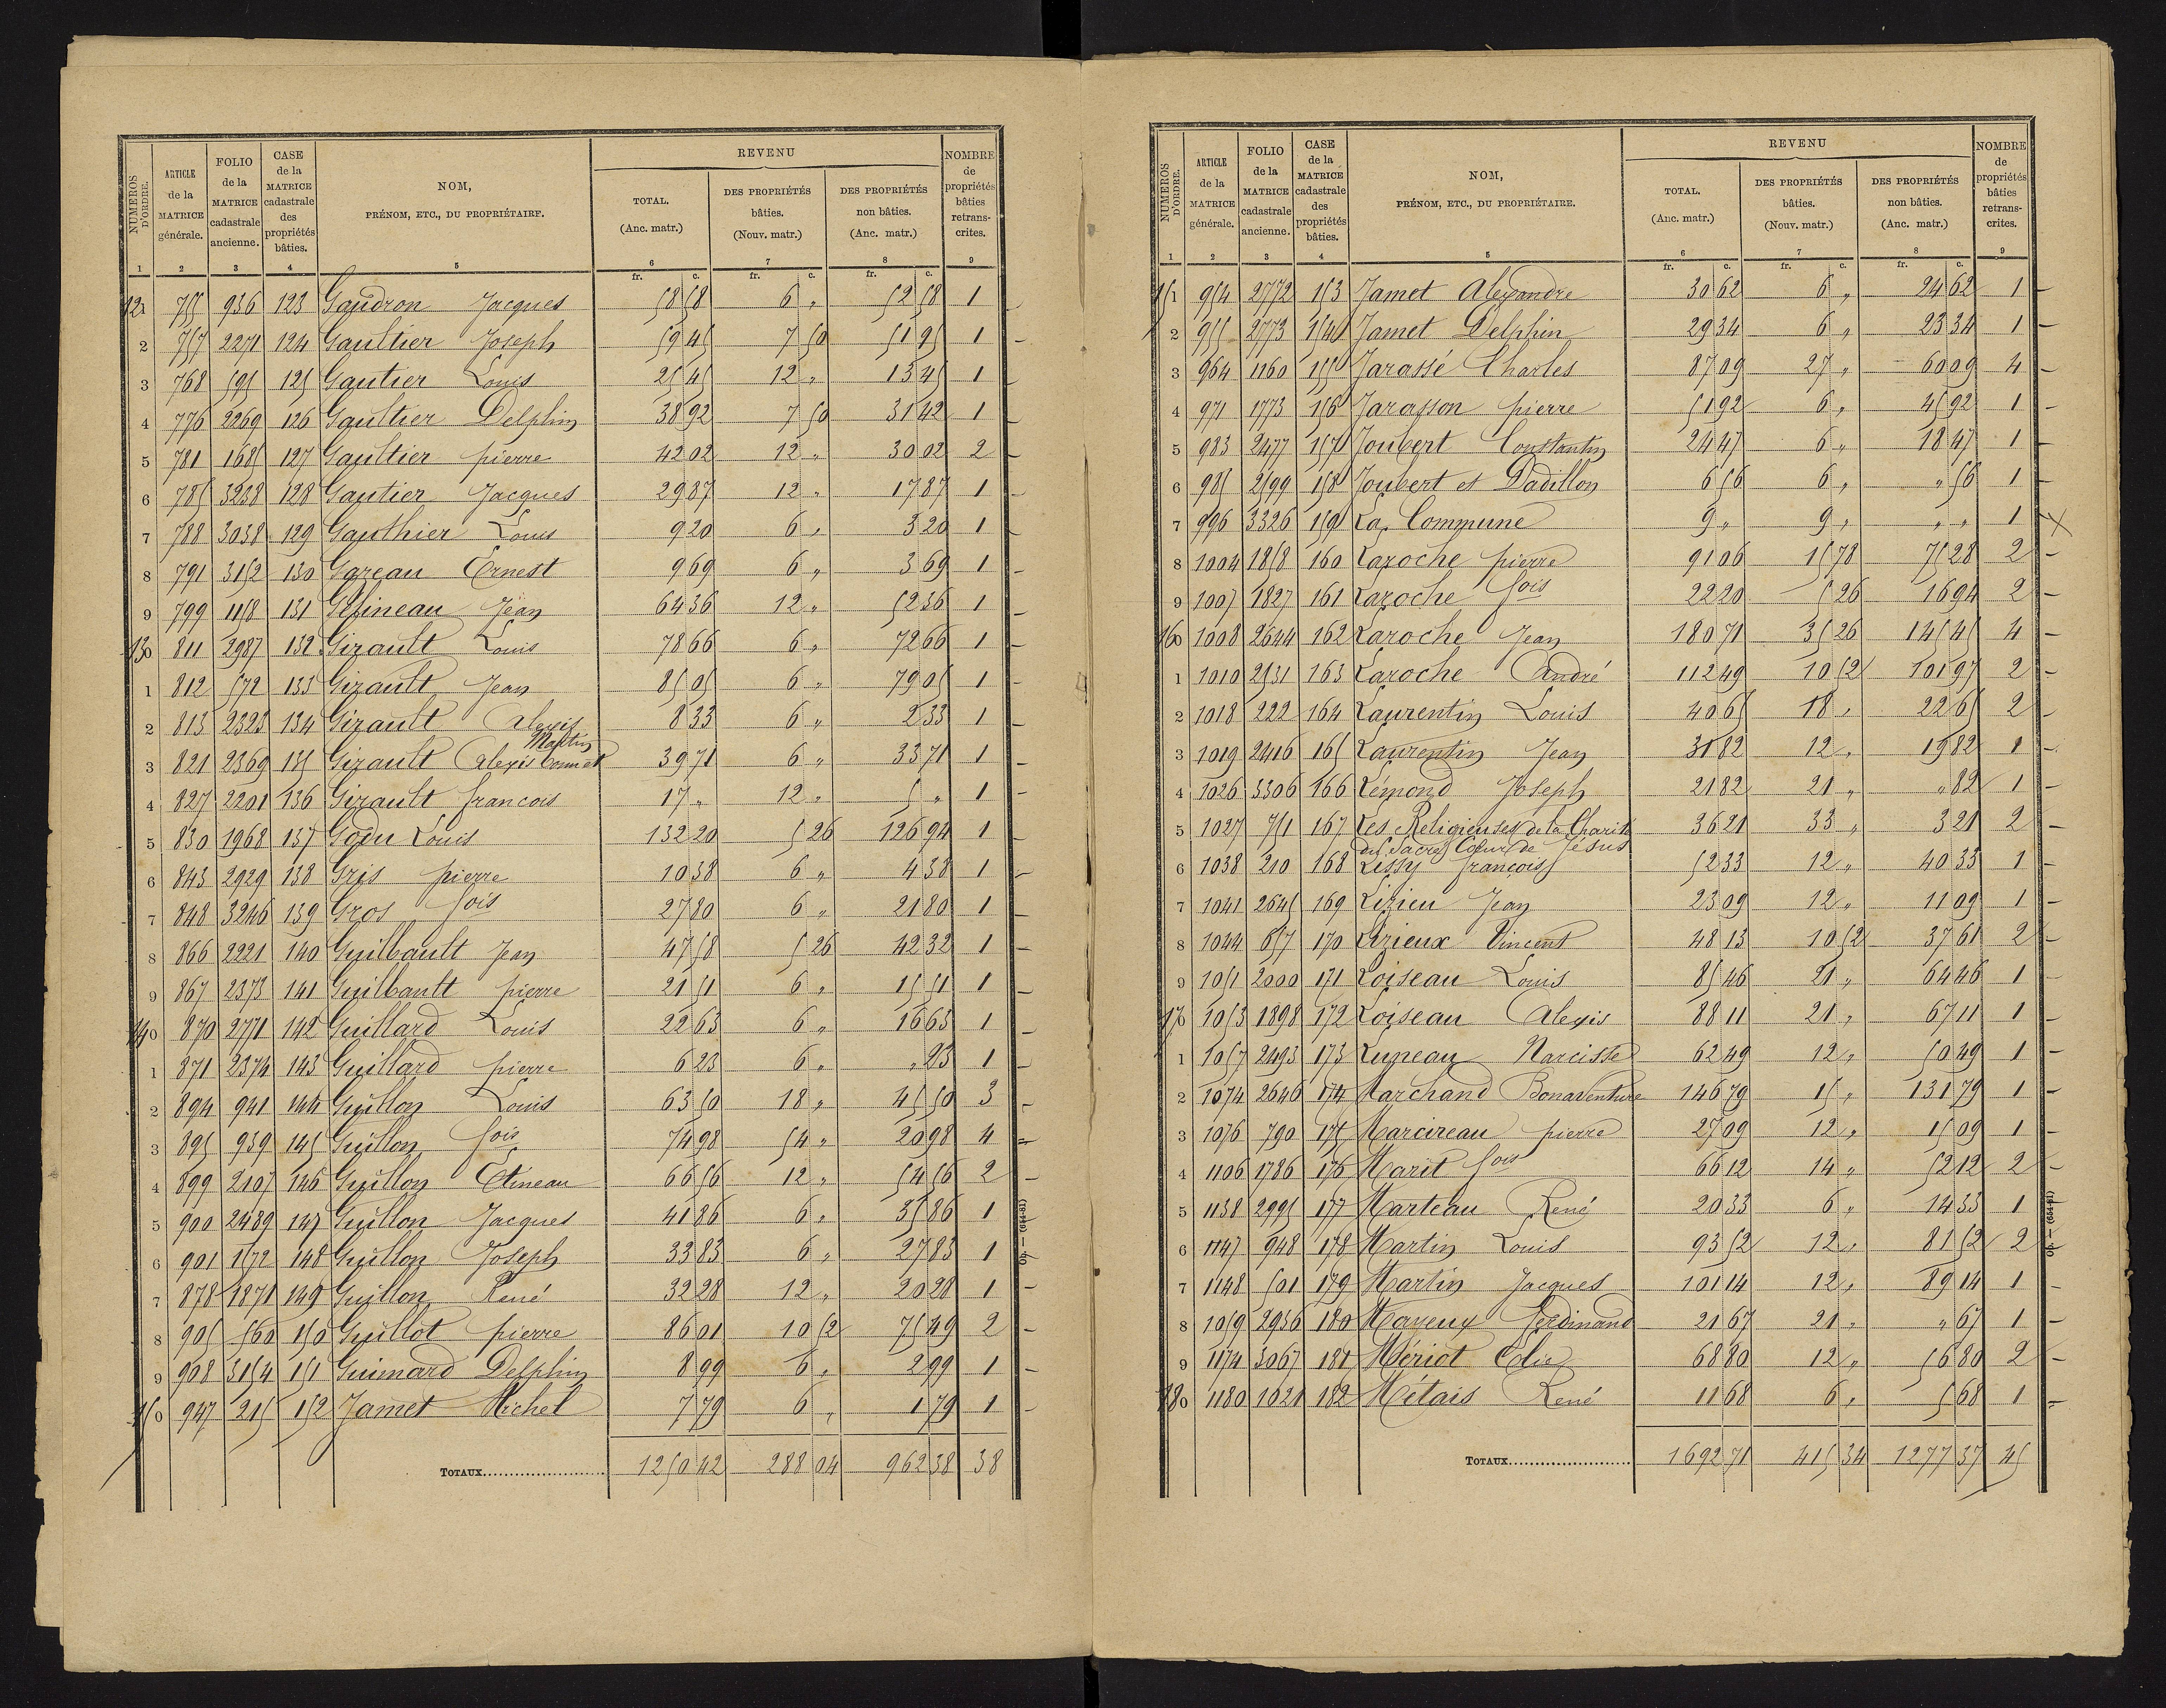 NUMÉROS D'ORDRE. | ARTICLE de la MATRICE générale. | FOLIO de la MATRICE cadastrale ancienne. | CASE de la MATRICE cadastrale des propriétés bâties. | NOM, PRÉNOM, ETC., DU PROPRIÉTAIRE. | REVENU | NOMBRE de propriétés bâties retranscrites.
TOTAL. (Anc. matr.) | DES PROPRIÉTÉS bâties. (Nouv. matr.) | DES PROPRIÉTÉS non bâties. (Anc. matr.)
1 | 2 | 3 | 4 | 5 | 6 | 7 | 8 | 9
fr. c. | fr. c. | fr. c.
121 | 755 | 936 | 123 | Gaudron Jacques | 58 58 | 6 " | 52 58 | 1
2 | 757 | 2271 | 124 | Gaultier Joseph | 59 45 | 7 50 | 51 95 | 1
3 | 768 | 595 | 125 | Gautier Louis | 25 45 | 12 " | 13 45 | 1
4 | 776 | 2269 | 126 | Gaultier Delphin | 38 92 | 7 50 | 31 42 | 1
5 | 781 | 1685 | 127 | Gaultier pierre | 42 02 | 12 " | 30 02 | 2
6 | 785 | 3238 | 128 | Gautier Jacques | 29 87 | 12 " | 17 87 | 1
7 | 788 | 3038 | 129 | Gauthier Louis | 9 20 | 6 " | 3 20 | 1
8 | 791 | 3152 | 130 | Gazeau Ernest | 9 69 | 6 " | 3 69 | 1
9 | 799 | 1158 | 131 | Gélineau Jean | 64 36 | 12 " | 52 36 | 1
130 | 811 | 2987 | 132 | Girault Louis | 78 66 | 6 " | 72 66 | 1
1 | 812 | 572 | 133 | Girault Jean | 85 05 | 6 " | 79 05 | 1
2 | 813 | 2323 | 134 | Girault Alexis | 8 33 | 6 " | 2 33 | 1
Martin
3 | 821 | 2369 | 135 | Girault Alexis | 39 71 | 6 " | 33 71 | 1
4 | 827 | 2201 | 136 | Girault francois | 17 " | 12 " | 5 " | 1
5 | 830 | 1968 | 137 | Godu Louis | 132 20 | 5 26 | 126 94 | 1
6 | 843 | 2929 | 138 | Gris pierre | 10 38 | 6 " | 4 38 | 1
7 | 848 | 3246 | 139 | Gros fois | 27 80 | 6 " | 21 80 | 1
8 | 866 | 2221 | 140 | Guilbault Jean | 47 58 | 5 26 | 42 32 | 1
9 | 867 | 2373 | 141 | Guilbault pierre | 21 51 | 6 " | 15 51 | 1
140 | 870 | 2771 | 142 | Guillard Louis | 22 63 | 6 " | 16 63 | 1
1 | 871 | 2374 | 143 | Guillard pierre | 6 23 | 6 " | " 23 | 1
2 | 894 | 941 | 144 | Guillon Louis | 63 50 | 18 " | 45 50 | 3
3 | 895 | 939 | 145 | Guillon fois | 74 98 | 54 " | 20 98 | 4
4 | 899 | 2107 | 146 | Guillon Etineau | 66 56 | 12 " | 54 56 | 2
5 | 900 | 2489 | 147 | Guillon Jacques | 41 86 | 6 " | 35 86 | 1
6 | 901 | 1572 | 148 | Guillon Joseph | 33 83 | 6 " | 27 83 | 1
7 | 878 | 1871 | 149 | Guillon René | 32 28 | 12 " | 20 28 | 1
8 | 905 | 560 | 150 | Guillot pierre | 86 01 | 10 52 | 75 49 | 2
9 | 908 | 3154 | 151 | Guimard Delphin | 8 99 | 6 " | 2 99 | 1
150 | 947 | 215 | 152 | Jamet Michel | 7 79 | 6 " | 1 79 | 1
TOTAUX | 1250 42 | 288 04 | 962 38 | 38
NUMÉROS D'ORDRE. | ARTICLE de la MATRICE générale. | FOLIO de la MATRICE cadastrale ancienne. | CASE de la MATRICE cadastrale des propriétés bâties. | NOM, PRÉNOM, ETC., DU PROPRIÉTAIRE. | REVENU | NOMBRE de propriétés bâties retranscrites.
TOTAL. (Anc. matr.) | DES PROPRIÉTÉS bâties. (Nouv. matr.) | DES PROPRIÉTÉS non bâties. (Anc. matr.)
1 | 2 | 3 | 4 | 5 | 6 | 7 | 8 | 9
fr. c. | fr. c. | fr. c.
151 | 954 | 2772 | 153 | Jamet Alexandre | 30 62 | 6 " | 24 62 | 1
2 | 955 | 2773 | 154 | Jamet Delphin | 29 34 | 6 " | 23 34 | 1
3 | 964 | 1160 | 155 | Jarassé Charles | 87 09 | 27 " | 60 09 | 4
4 | 971 | 1773 | 156 | Jarasson pierre | 51 92 | 6 " | 45 92 | 1
5 | 983 | 2477 | 157 | Joubert Constantin | 24 47 | 6 " | 18 47 | 1
6 | 985 | 2599 | 158 | Joubert et Dadillon | 6 56 | 6 " | " 56 | 1
7 | 996 | 3326 | 159 | La Commune | 9 " | 9 " | " " | 1
8 | 1004 | 1858 | 160 | Laroche pierre | 91 06 | 15 78 | 75 28 | 2
9 | 1007 | 1827 | 161 | Laroche fois | 22 20 | 5 26 | 16 94 | 2
160 | 1008 | 2644 | 162 | Laroche Jean | 180 71 | 35 26 | 145 45 | 4
1 | 1010 | 2531 | 163 | Laroche André | 112 49 | 10 52 | 101 97 | 2
2 | 1018 | 222 | 164 | Laurentin Louis | 40 65 | 18 " | 22 65 | 2
3 | 1019 | 2416 | 165 | Laurentin Jean | 31 82 | 12 " | 19 82 | 1
4 | 1026 | 3306 | 166 | Lémond Joseph | 21 82 | 21 " | " 82 | 1
5 | 1027 | 751 | 167 | Les Religieuses de la Charité | 36 21 | 33 " | 3 21 | 2
du Sacré Cœur de Jésus
6 | 1038 | 210 | 168 | Lissy françois | 52 33 | 12 " | 40 33 | 1
7 | 1041 | 2645 | 169 | Lizieu Jean | 23 09 | 12 " | 11 09 | 1
8 | 1044 | 657 | 170 | Lizieux Vincent | 48 13 | 10 52 | 37 61 | 2
9 | 1051 | 2000 | 171 | Loiseau Louis | 85 46 | 21 " | 64 46 | 1
170 | 1053 | 1898 | 172 | Loiseau Alexis | 88 11 | 21 " | 67 11 | 1
1 | 1057 | 2493 | 173 | Luneau Narcisse | 62 49 | 12 " | 50 49 | 1
2 | 1074 | 2646 | 174 | Marchand Bonaventure | 146 79 | 15 " | 131 79 | 1
3 | 1076 | 790 | 175 | Marcireau pierre | 27 09 | 12 " | 15 09 | 1
4 | 1106 | 1786 | 176 | Marit fois | 66 12 | 14 " | 52 12 | 2
5 | 1138 | 2995 | 177 | Marteau René | 20 33 | 6 " | 14 33 | 1
6 | 1147 | 948 | 178 | Martin Louis | 93 52 | 12 " | 81 52 | 2
7 | 1148 | 501 | 179 | Martin Jacques | 101 14 | 12 " | 89 14 | 1
8 | 1059 | 2936 | 180 | Mayeux Ferdinand | 21 67 | 21 " | " 67 | 1
9 | 1174 | 3067 | 181 | Mériot Elie | 68 80 | 12 " | 56 80 | 2
180 | 1180 | 1021 | 182 | Métais René | 11 68 | 6 " | 5 68 | 1
TOTAUX | 1692 71 | 415 34 | 1277 37 | 45